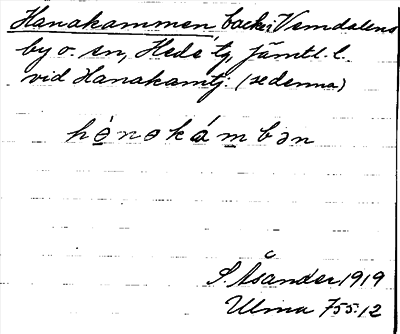 Hanakammen backe i Vemdalens
by o. sn, Hede tg, Jämtl. l.
vid Hanakamtj. (se denna)
hònokámbən
S. Åsander 1919
Ulma 755:12